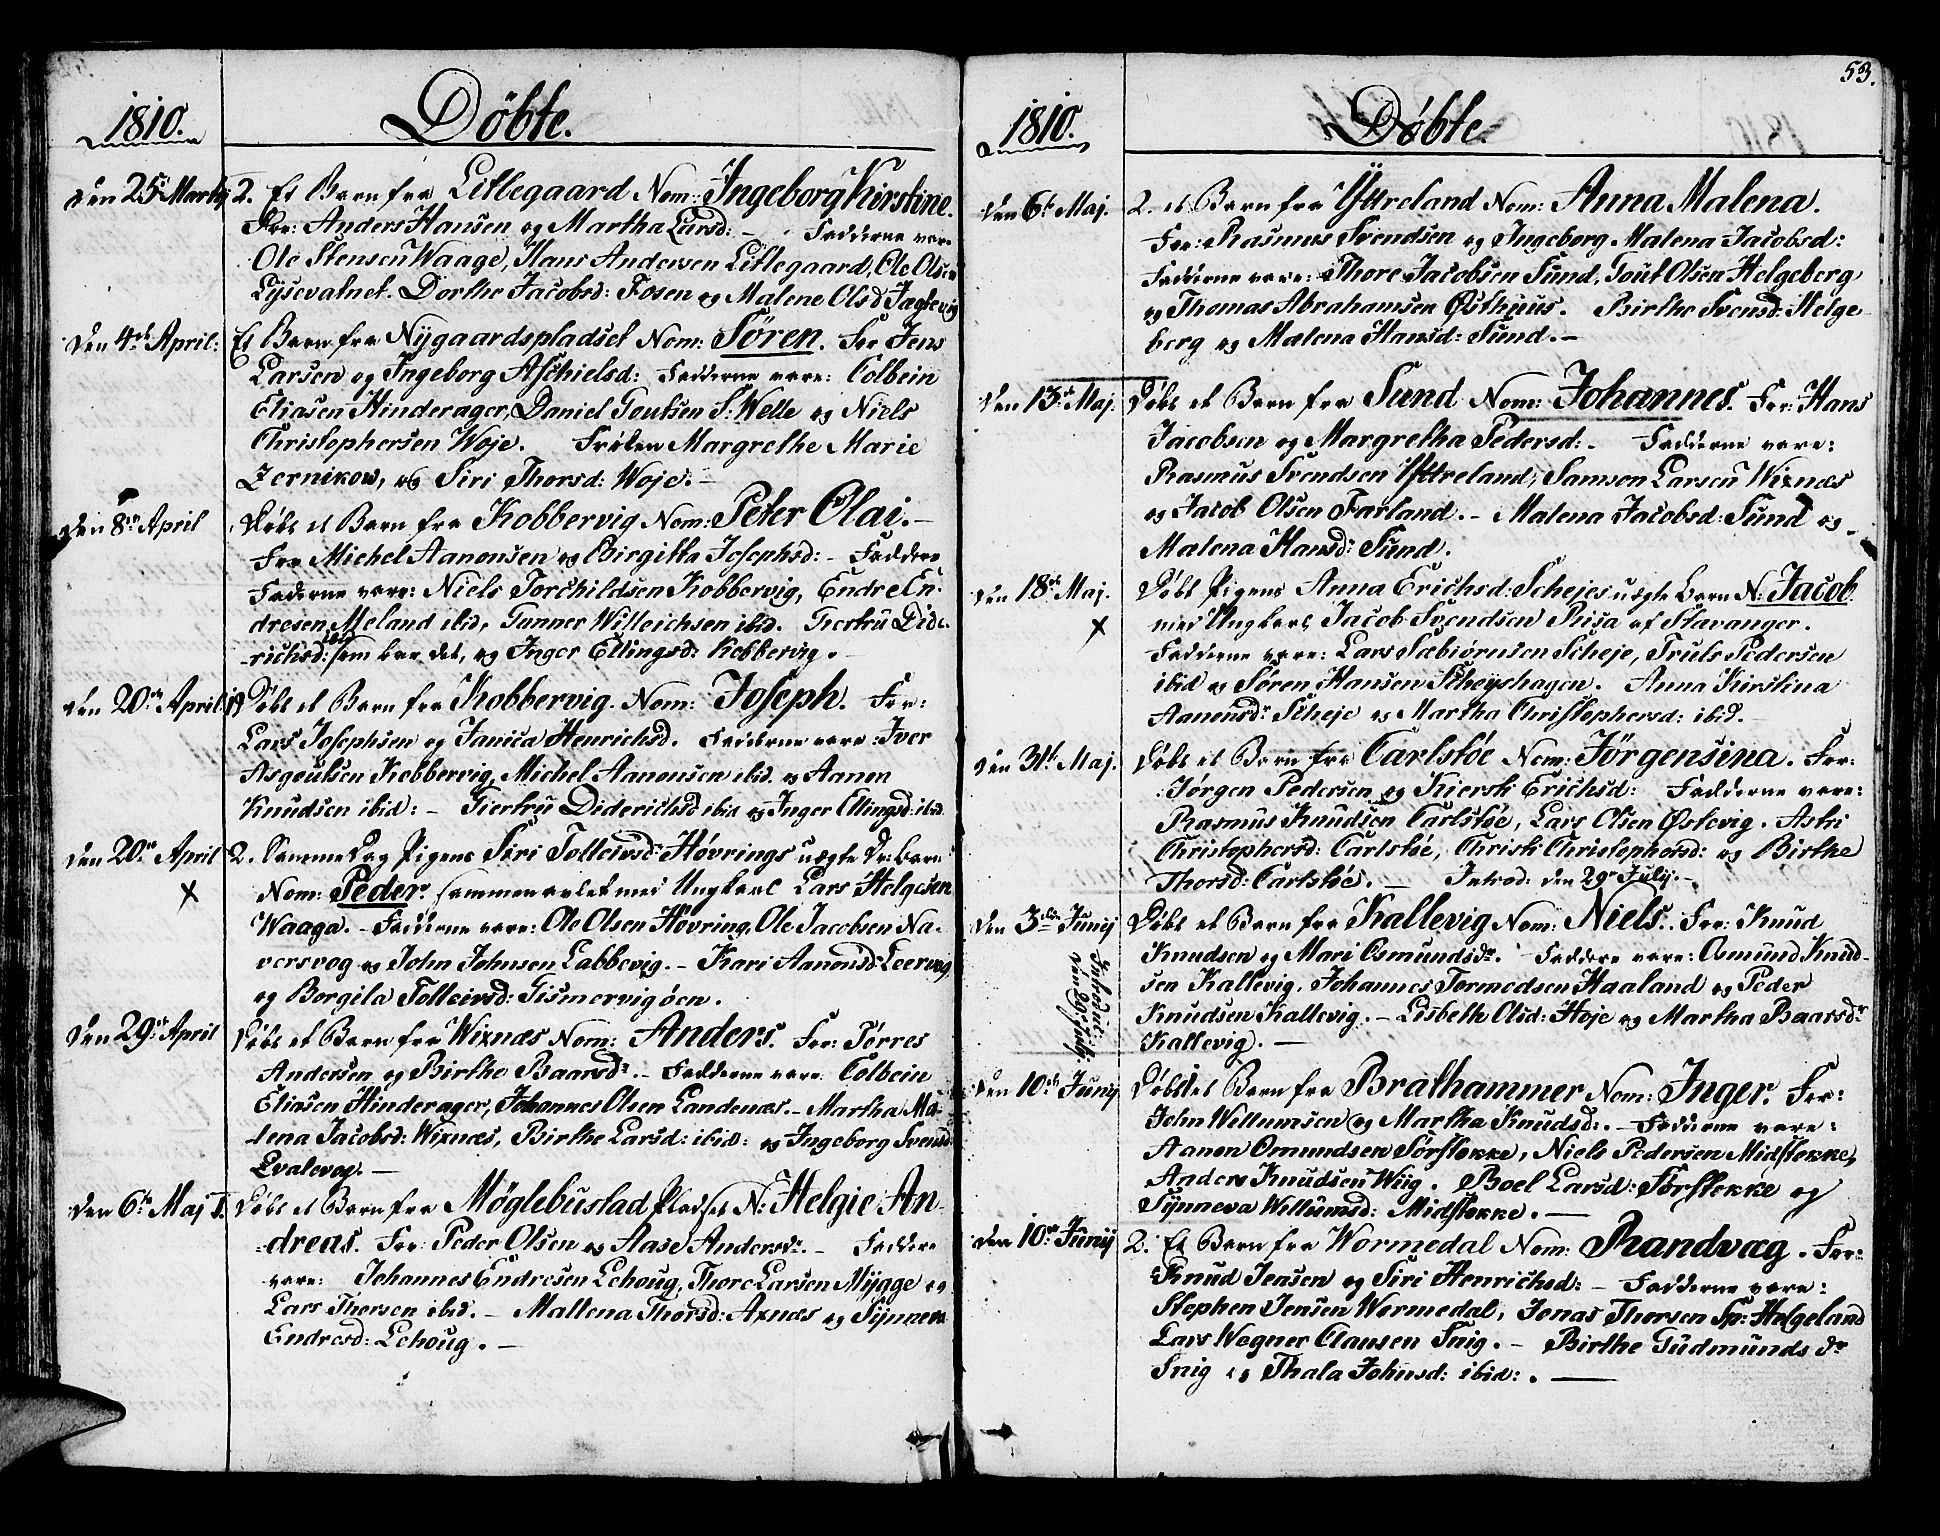 1810.
Döbte.
den 25de Martij
2. Et Barn fra Litlegaard Nom: Ingeborg Kirstine.
For: Anders Hansen og Martha Larsd: – Fadderne vare
Ole Stensen Waage, Hans Andersen Litlegaard, Ole Olsen
Lysevatnet. Dorthe Jacobsd: Fosen og Malene Olsd Jaglevig
den 4de April:
Et Barn fra Nygaardspladset Nom: Sören. For Jens
Larsen og Ingeborg Aschielsd: Fadderne vare: Colbein
Eliasen Hinderager, Daniel Goutsen S: Welle og Niels
Christophersen Woje. Fröken Margrethe Marie
Zernikow, og Siri Thorsd: Woje. –
den 8de April
Døbt et Barn fra Kobbervig Nom: Peter Olai. –
For Michel Aanonsen og Birgitta Josephsd: – Faddere
Fadderne vare: Niels Torchildsen Kobbervig, Endre En-
dresen Meland ibid, Gunner Willeichsen ibid. Giertru Dide-
richsd: ibid som bar det, og Inger Ellingsd: Kobbervig. –
den 20de April
1) Døbt et Barn fra Kobbervig. Nom: Joseph. For:
Lars Josephsen og Janica Henrichsd. Fadderne vare: Iver
Asgoutsen Kobbervig, Michel Aanonsen ibid. og Aanen
Knudsen ibid: – Giertru Diderichsd ibid og Inger Ellingsd: ibid.
den 20de April
x
2. Samme Dag Pigens Siri Tolleivsd: Høvrings uægte Dr: Barn
Nom: Peder. sammenavlet med Ungkarl Lars Helgesen
Waaga. – Fadderne vare: Ole Olsen Hövring, Ole Jacobsen Na-
versvog og John Johnsen Labbevig. – Kari Aanonsd: Leervog
og Borgila Tolleivsd: Gismervigöen.
den 29de April
Døbt et Barn fra Wixnæs Nom: Anders. For: Törres
Andersen og Birthe Baarsdr. – Fadderne vare: Colbein
Eliasen Hinderager, Johannes Olsen Landenæs. – Martha Ma-
lena Jacobsd: Wixnæs, Birthe Larsd: ibid: og Ingeborg Svensd:
Qvalevog. –
den 6te Maj 1.
Døbt et Barn fra Möglebustad Pladset N: Helgie An-
dreas. For: Peder Olsen og Aase Andersdr. – Faddere
vare: Johannes Endresen Lehoug, Thore Larsen Mygge og
Lars Thorsen ibid. – Mallena Thorsd: Axnæs og Synneva
Endresd: Lehoug. –
53.
1810.
Døbte.
den 6te Maj.
2. et Barn fra Ytreland Nom: Anna Malena.
For: Rasmus Svendsen og Ingeborg Malena Jacobsd:
Fadderne vare: Thore Jacobsen Sund, Gout Olsen Helgeberg
og Thomas Abrahamsen Østhuus. Birthe Svensd: Helge-
berg og Malena Hansd: Sund. –
den 13de Maj.
Døbt et Barn fra Sund Nom: Johannes. For: Hans
Jacobsen og Margretha Pedersd: Fadderne vare:
Rasmus Svendsen Ytreland, Samson Larsen Wixnæs
og Jacob Olsen Farland. – Malena Jacobsd: Sund og
Malena Hansd: Sund.
den 18de Maj.
x
Døbt Pigens Anna Erichsd: Schejes uægte Barn N: Jacob.
med Ungkarl Jacob Svendsen Risa af Stavanger.
Fadderne vare: Lars Sæbiørnsen Scheje, Truls Pedersen
ibid og Søren Hansen Scheyshagen. Anna Kirstina
Aanensdr Scheje og Martha Christophersd: ibid. –
den 31te Maj.
Døbt et Barn fra Carlstöe Nom: Jörgensina. For:
Jørgen Pedersen og Kiersti Erichsd: Fadderne vare:
Rasmus Knudsen Carlstöe, Lars Olsen Østevig. Astri
Christophersd: Carlstöe, Christi Christophersd: og Birthe
Thorsd: Carlstöe. – Introd: den 29de Julij. –
den 3die Junij
Introduc:
den 29de Julij.
Døbt et Barn fra Kallevig Nom: Niels. For: Knud
Knudsen og Mari Osmundsdr. Faddere vare: Osmund Knud-
sen Kallevig, Johannes Tormodsen Haaland og Peder
Knudsen Kallevig. – Lisbeth Olsd: Høje og Martha Baarsdr
Kallevig. –
den 10de Junij
Døbt 1 et Barn fra Brathammer Nom: Inger. For:
John Willumsen og Martha Knudsd: – Fadderne vare:
Aanen Omundsen Sørstokke, Niels Pedersen Midstokke,
Anders Knudsen Wiig. Boel Larsd: Sørstokke og
Synneva Willumsd: Midstokke. –
den 10de Junij
2. Et Barn fra Wormedal Nom: Randvæg. For:
Knud Jensen og Siri Henrichsd: – Fadderne vare:
Stephen Jensen Wormedal, Jonas Thorsen Sp: Helgeland
Lars Wegner Clausen Snig. – Birthe Gudmundsdr
Snig og Thala Johnsd: ibid: . –